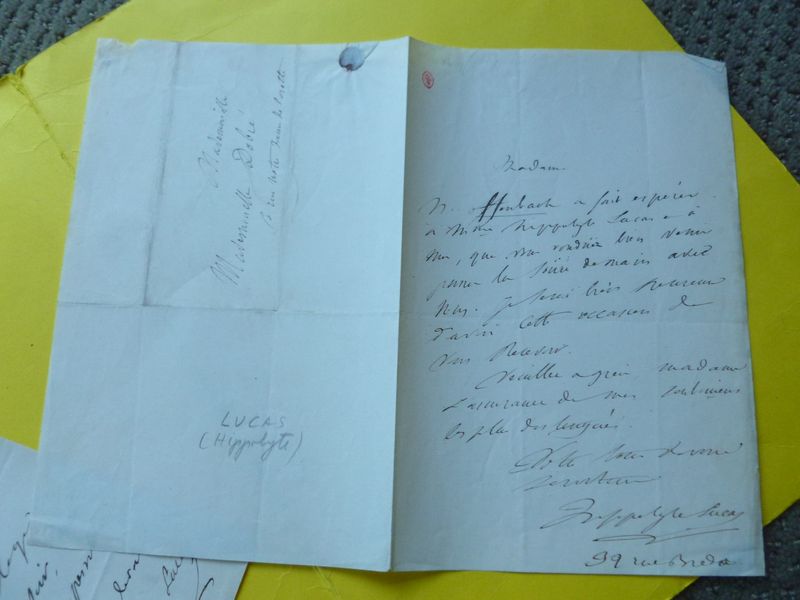 Mademoiselle
Mademoiselle Dobré
rue notre Dame de lorette
LUCAS
(Hippolyte)
Madame
M. Offenbach a fait espérer
à Mme Hippolyte Lucas et à
moi, que vous voudriez bien venir
passer la soirée de mardi avec
nous. Je serai très heureux
d'avoir cette occasion de
vous recevoir.
Veuillez agréer, madame
l'assurance de mes sentiments
les plus distingués.
Votre tout dévoué
serviteur
Hippolyte Lucas
rue Breda